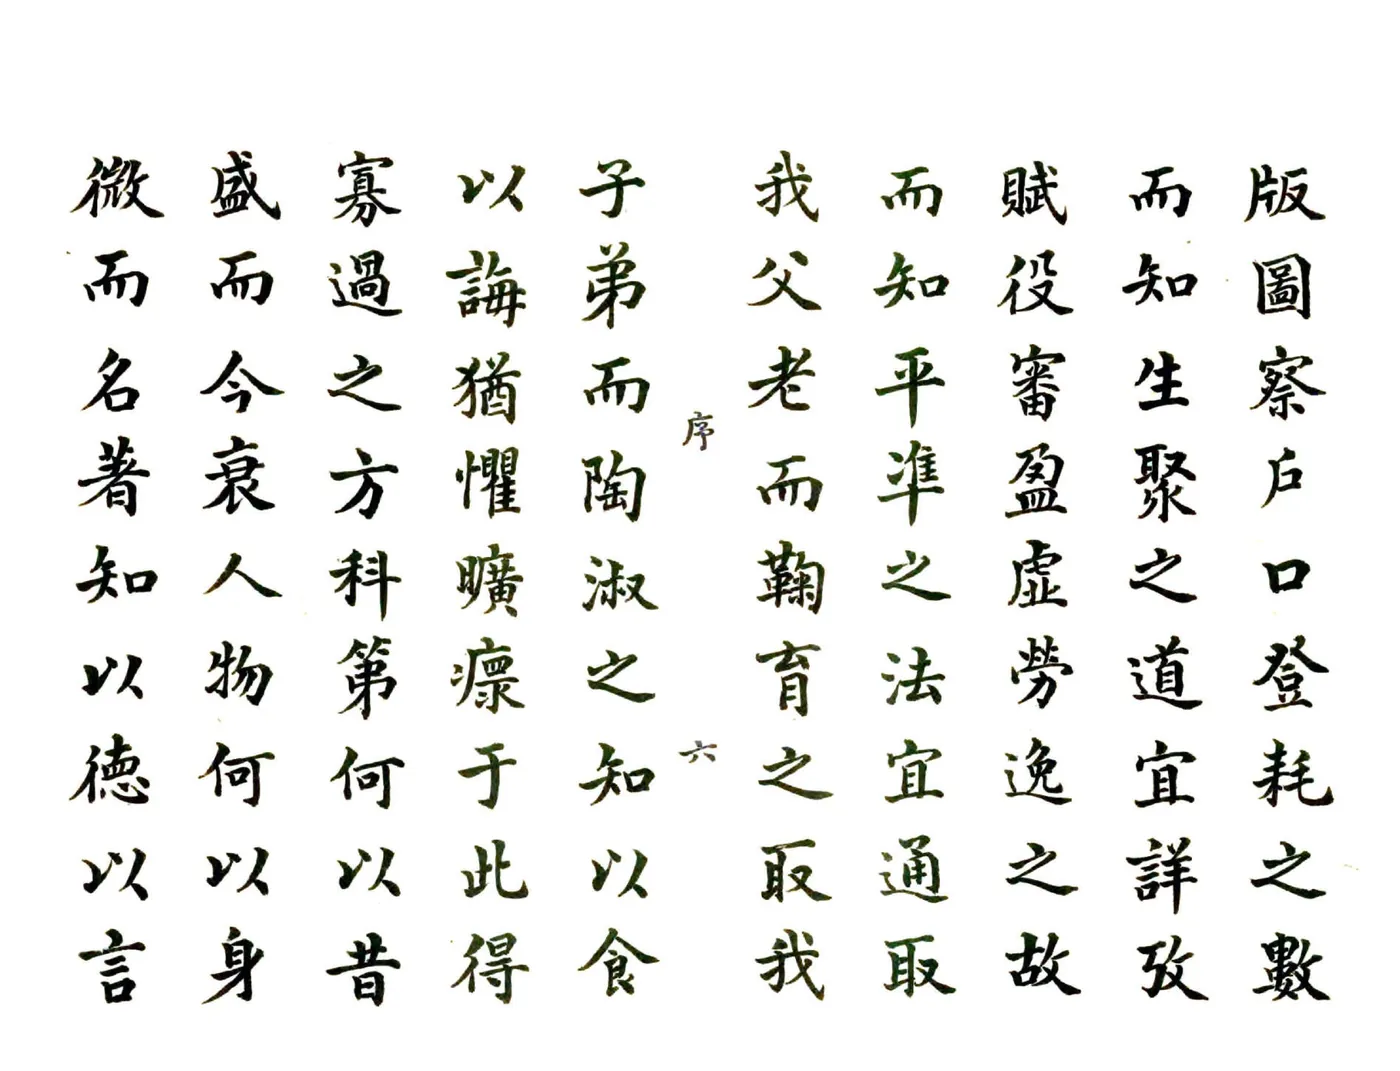 版圖察戶口登耗之數
而知生聚之道宜詳攷
賦役審盈虛勞逸之故
而知平準之法宜通取
我父老而鞠育之取我
序
六
子弟而陶淑之知以食
以誨猶懼曠瘝于此得
寡過之方科第何以昔
盛而今衰人物何以身
微而名著知以德以言